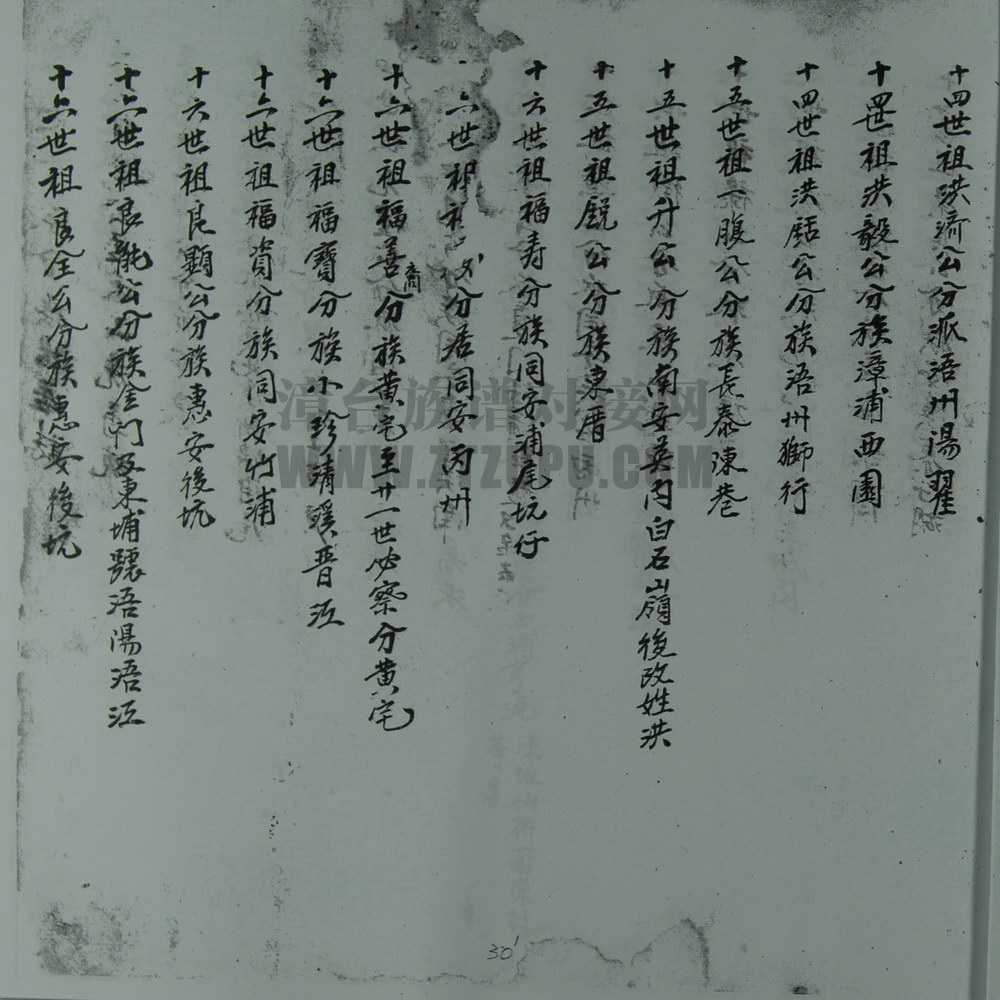 十四世祖洪流公分派浯州湯翟
十四世祖洪毅公分族漳浦西園
十四世祖洪公分族浯州獅行
十五世祖一腹公分族長泰陳巷
十五世祖升公分族南安英內白石嶺後改姓洪
十五世祖銳公分族東厝
十六世祖福寿分族同安浦尾坑仔
六世祖分居同安丙州
十六世祖福善分族黃宅至廿一世必察分黃宅
裔
十六世祖福寶分族小珍清溪晋江
十六世祖福資分族同安竹浦
十六世祖良顕公分族惠安後坑
十六世祖良能公分族金门及東埔浯湯浯江
十六世祖良全公分族惠安後坑
漳台族谱对接网
WWW.ZTZUPU.COM
30